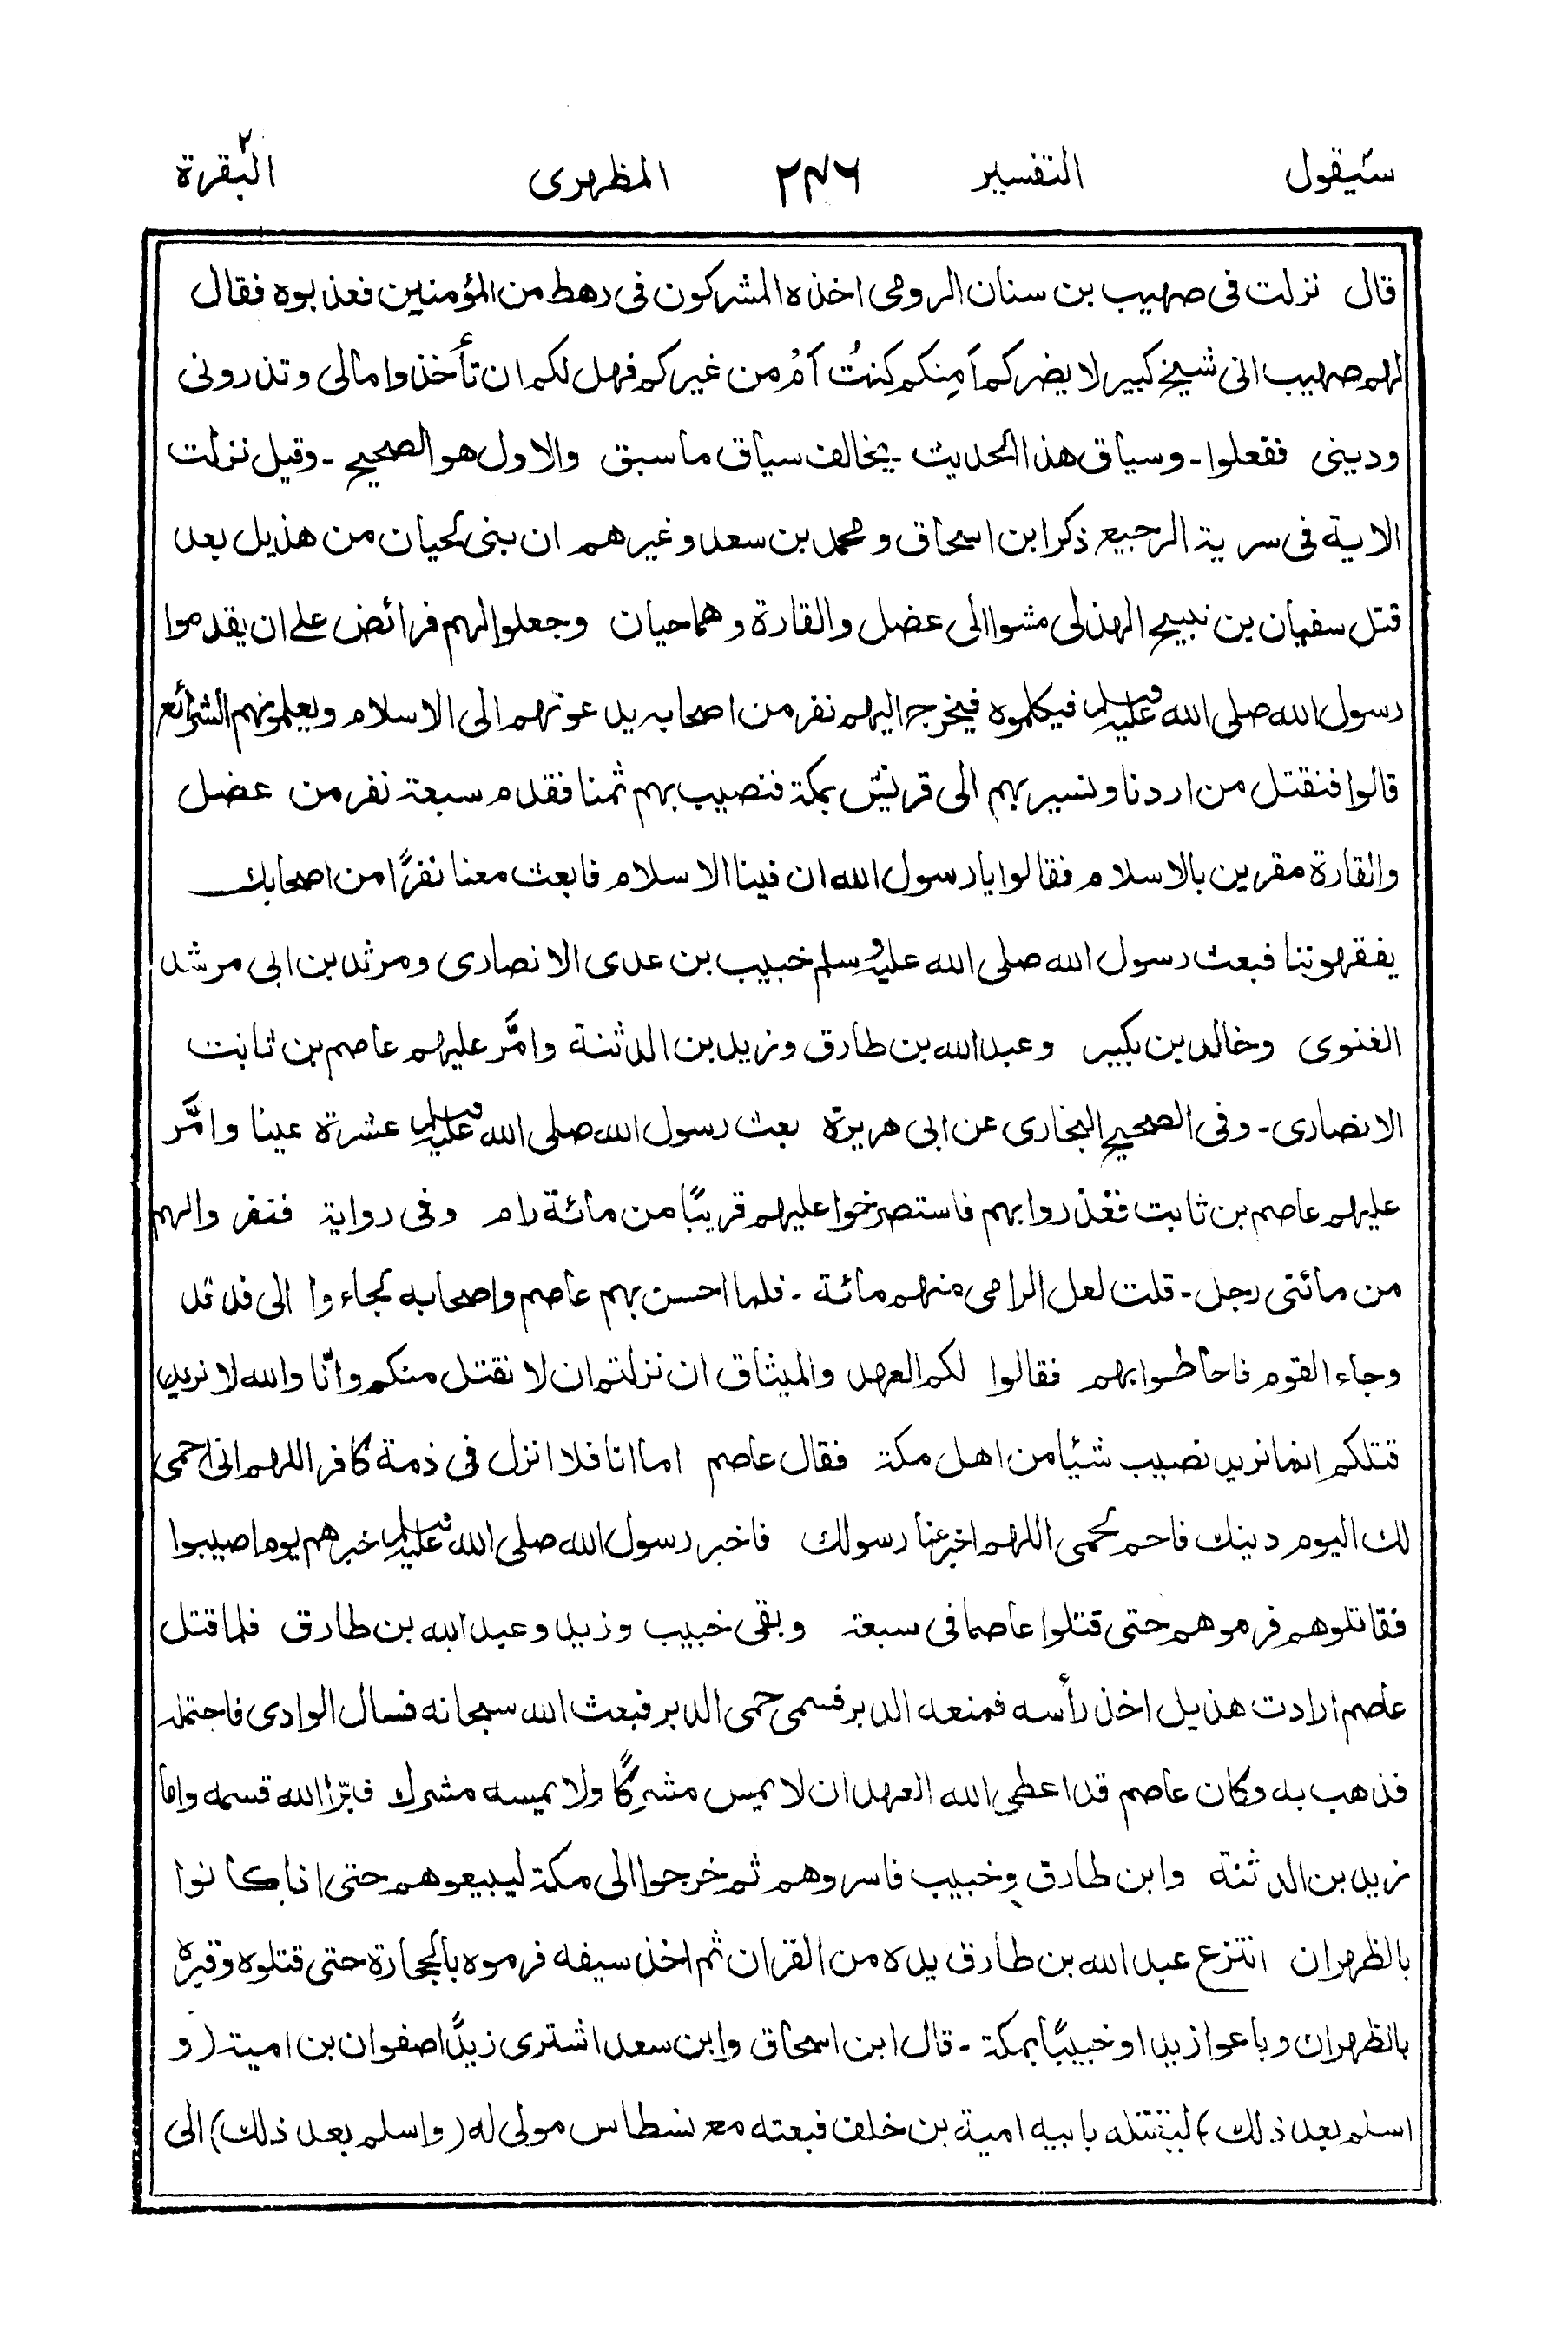 سيقول التفسير ٢٤٦ المظهرى البقرة ٢
قال نزلت فى صهيب بن سنان الرومى اخذه المشركون فى رهط من المؤمنين فعذبوه فقال
لهم صهيب انى شيخ كبير لا يضركم أمنكم كنتُ أمْ من غيركم فهل لكم ان تأخذوا مالى وتذرونى
ودينى ففعلوا - وسياق هذا الحديث - يخالف سياق ما سبق والاول هو الصحيح - وقيل نزلت
الاية فى سرية الرجيع ذكر ابن اسحاق ومحمد بن سعد وغيرهم ان بنى لحيان من هذيل بعد
قتل سفيان بن نبيح الهذلى مشوا الى عضل والقارة وهما حيان وجعلوا لهم فرائض على ان يقدموا
رسول الله صلى الله عليه وسلم فيكلموه فيخرج اليهم نفر من اصحابه يدعونهم الى الاسلام ويعلمونهم الشرائع
قالوا فنقتل من اردنا ونسير بهم الى قريش بمكة فنصيب بهم ثمنا فقدم سبعة نفر من عضل
والقارة مقرين بالاسلام فقالوا يا رسول الله ان فينا الاسلام فابعث معنا نفرًا من اصحابك
يفقهوننا فبعث رسول الله صلى الله عليه وسلم خبيب بن عدى الانصارى ومرثد بن ابى مرشد
الغنوى وخالد بن بكير وعبد الله بن طارق وزيد بن الدثنة وامَّر عليهم عاصم بن ثابت
الانصارى - وفى الصحيح البخارى عن ابى هريرة بعث رسول الله صلى الله عليه وسلم عشرة عينا وامَّر
عليهم عاصم بن ثابت فغذروا بهم فاستصرخوا عليهم قريبًا من مائة رام وفى رواية فنفر والهم
من مائتى رجل - قلت لعل الرامى منهم مائة - فلما احسن بهم عاصم واصحابه لجاءوا الى فدقد
وجاء القوم فاحاطوا بهم فقالوا لكم العهد والميثاق ان نزلتم ان لا نقتل منكم وانّا والله لا نريد
قتلكم انما نريد نصيب شئيا من اهل مكة فقال عاصم اما انا فلا انزل فى ذمة كافر اللهم انى احمى
لك اليوم دينك فاحم لحمى اللهم اخبر عنا رسولك فاخبر رسول الله صلى الله عليه وسلم خبرهم يوما صيبوا
فقاتلوهم فرموهم حتى قتلوا عاصما فى سبعة وبقى خبيب وزيد وعبد الله بن طارق فلما قتل
عاصم ارادت هذيل اخذ رأسه فمنعه الدبر فسمى حمى الدبر فبعث الله سبحانه فسال الوادى فاحتمله
فذهب به وكان عاصم قد اعطى الله العهد ان لا يمس مشركًا ولا يمسه مشرك فابرّ الله قسمه واما
زيد بن الدثنة وابن طارق وخبيب فاسروهم ثم خرجوا الى مكة ليبيعوهم حتى اذا كانوا
بالظهران انتزع عبد الله بن طارق يده من القران ثم اخذ سيفه فرموه بالحجارة حتى قتلوه وقبره
بالظهران وباعوا زيدا وخبيبًا بمكة - قال ابن اسحاق وابن سعد اشترى زيدًا صفوان بن امية (و
اسلم بعد ذلك) ليقتله بابيه امية بن خلف فبعته مع نسطاس مولى له (واسلم بعد ذلك) الى